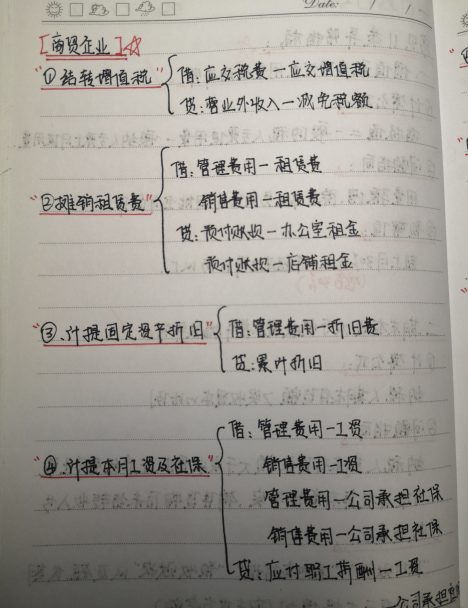 Date:
[商贸企业]☆
"①结转增值税"
借:应交税费—应交增值税
贷:营业外收入—减免税额
"②摊销租赁费"
借:管理费用—租赁费
销售费用—租赁费
贷:预付账款—办公室租金
预付账款—店铺租金
"③.计提固定资产折旧"
借:管理费用—折旧费
贷:累计折旧
"④.计提本月工资及社保"
借:管理费用—工资
销售费用—工资
管理费用—公司承担社保
销售费用—公司承担社保
贷:应付职工薪酬—工资
—公司承担